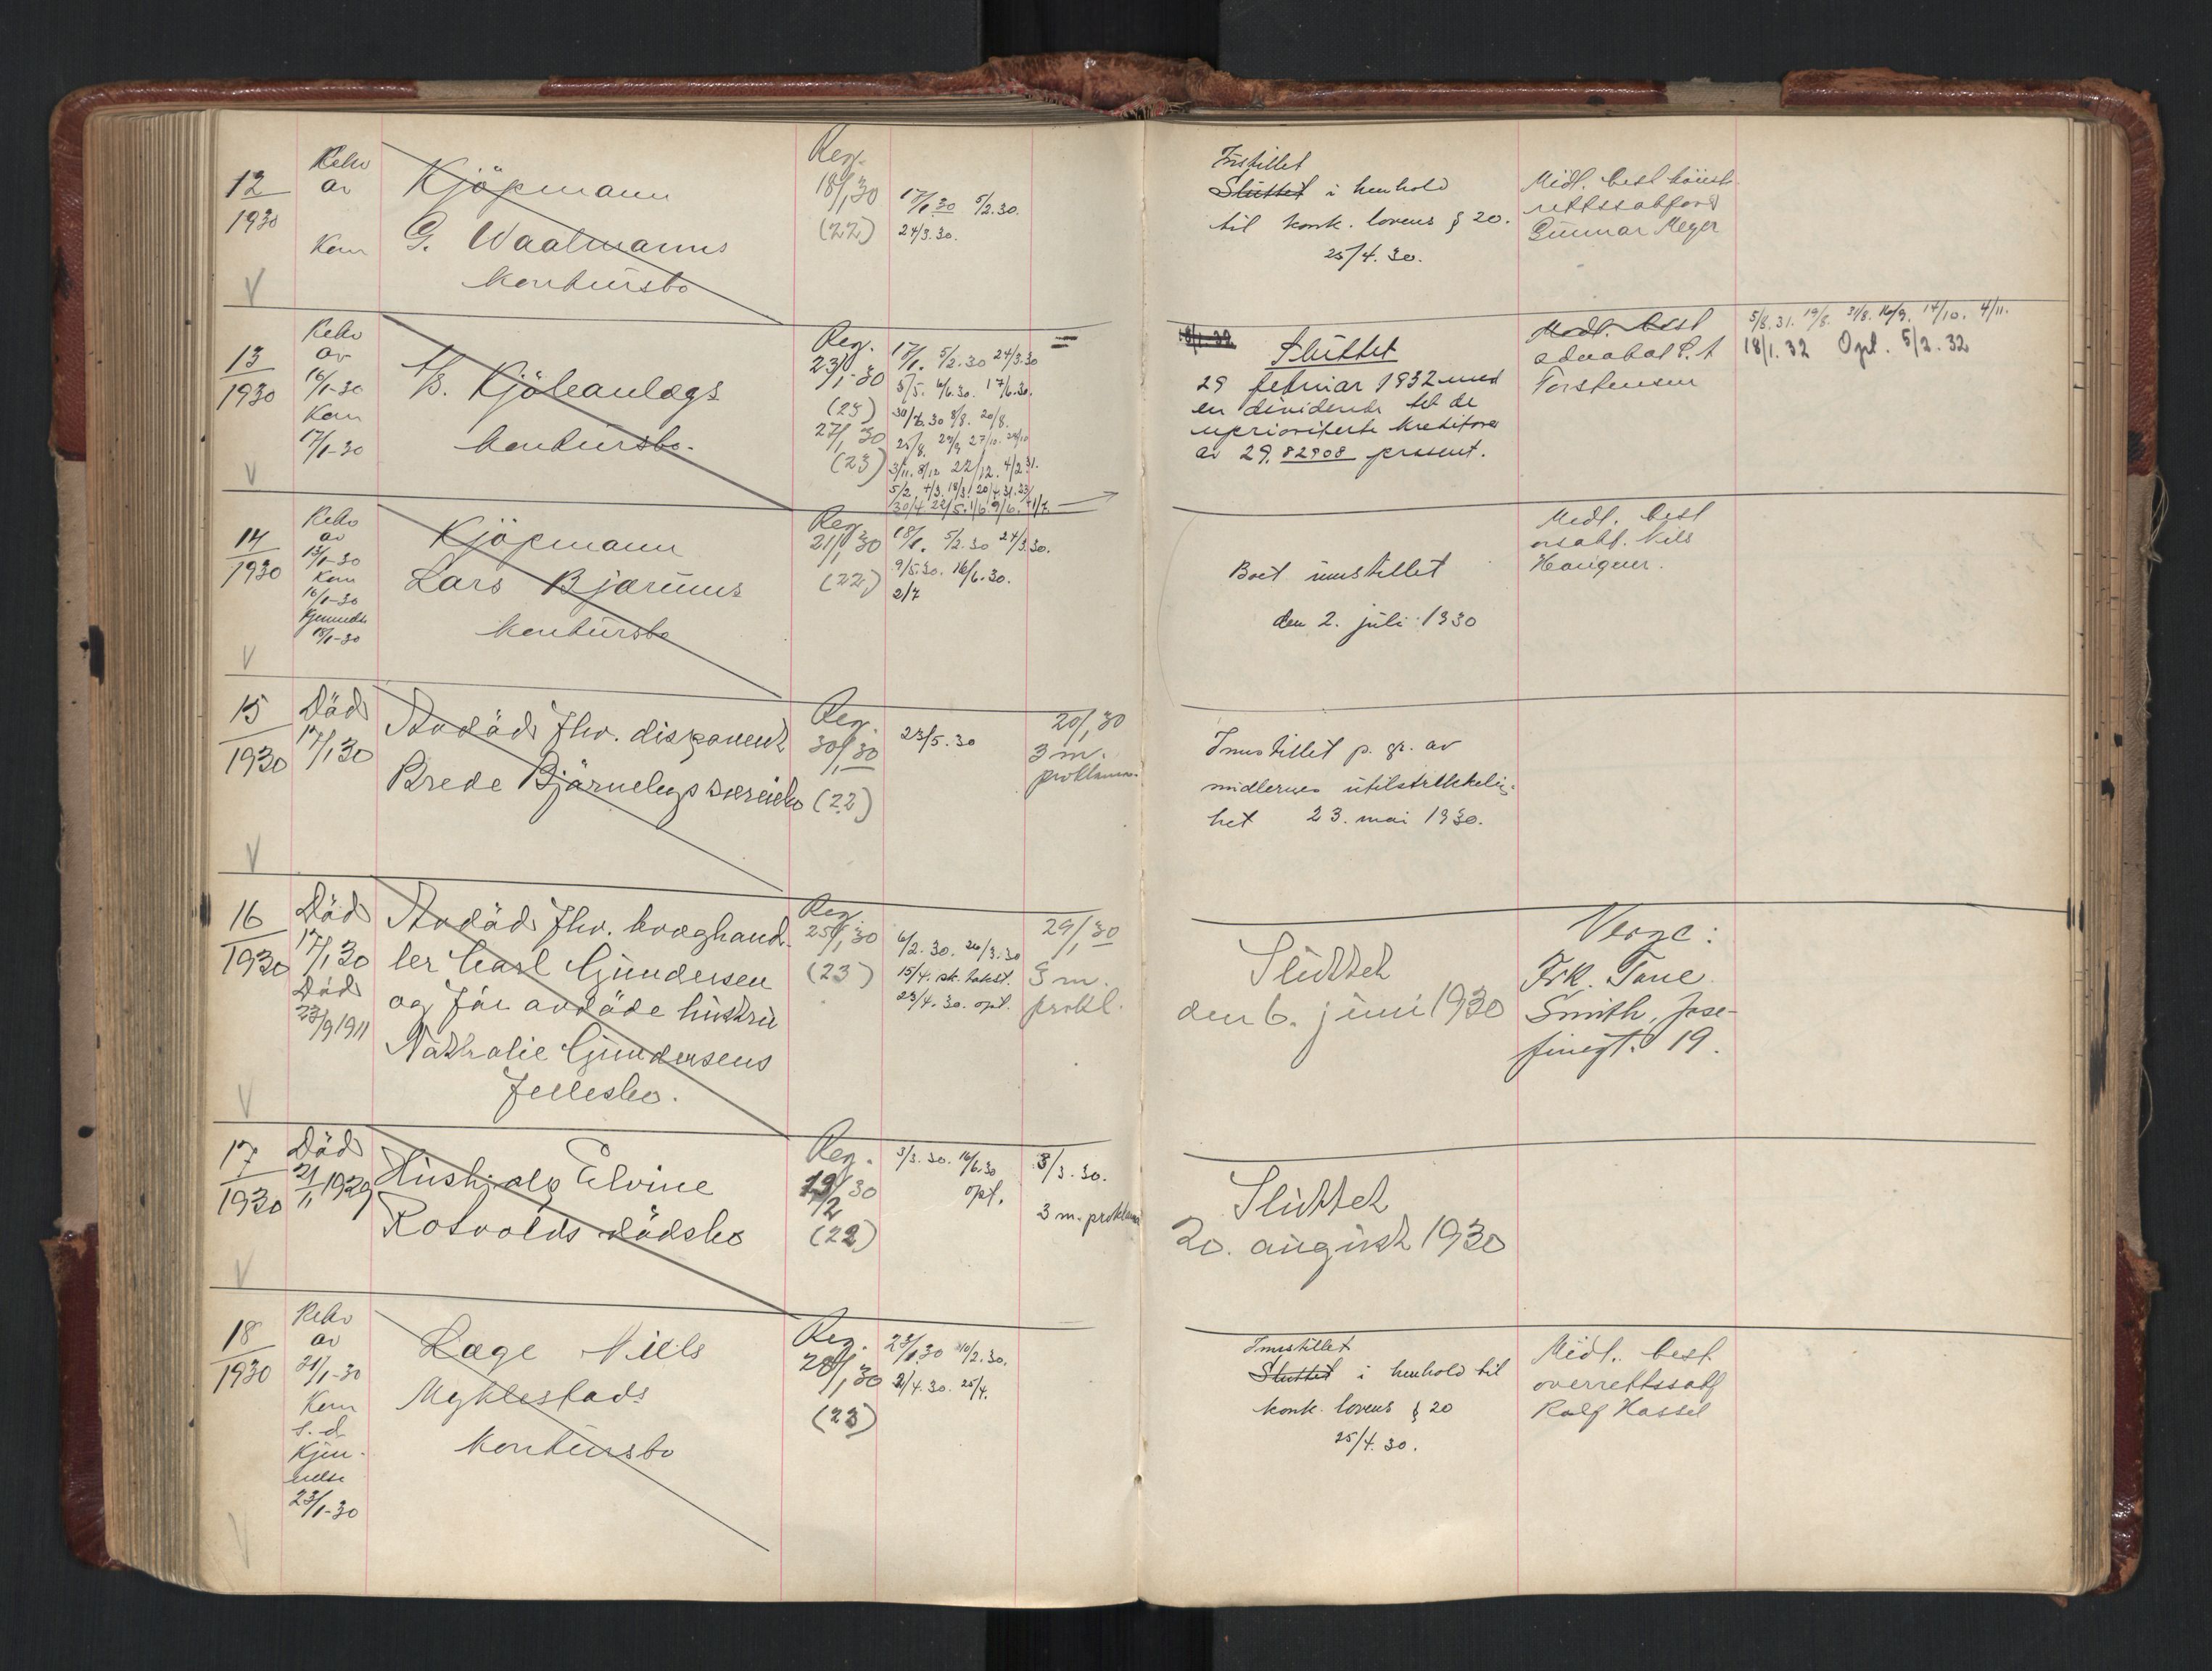 12
1930
Rekv
av
Kom
Kjöpmann
G. Waalmanns
konkursbo
Reg.
18/1 30
(22)
17/1.30 5/2.30.
24/3.30.
Innstillet
Sluttet i henhold
til konk. lovens § 20.
25/4. 30.
Midl. best höieste
rettssakförer
Gunnar Meyer
13
1930
Rekv
av
16/1-30
Kom
17/1-30
A/S. Kjöleanlægs
konkursbo.
Reg.
23/1-30
(23)
27/1 30
(23)
17/1. 5/2.30 24/3.30
5/5. 6/6.30. 17/6.30.
30/6.30 8/8. 20/8.
3/11. 8/12 22/12. 4/2 31.
18/1 32
Sluttet
29 februar 1932 med
en dividende til de
uprioriterte kreditorer
av 29.82908 prosent.
Midl. best
advokat P. A
Torstensen
5/8.31. 19/8. 31/8. 16/9. 14/10. 4/11.
18/1. 32 Opl. 5/2. 32
14
1930
Rekv
av
13/1-30
Kom
16/1-30
Kjennelse
18/1-30
Kjöpmann
Lars Bjørums
konkursbo
Reg.
21/1 30
(22)
18/1. 5/2.30 24/3.30.
9/5.30. 16/6.30.
2/7
Boet innstillet
den 2. juli 1930
Midl. best
orsakf. Nils
15
1930
Död
17/1 30
Avdöd fhv. disponent
Brede Bjørnebys særeiebo
Reg.
30/1 30
(22)
23/5.30
20/1 30
3 m.
proklama
Innstillet p. gr. av
midlernes utilstrekkelig-
het 23. mai 1930.
16
1930
Död
17/1 30
Död
23/9 1911
Avdöd fhv. kvæghand-
ler Carl Gundersen
ogför avdöde hustru
Nathalie Gundersens
fellesbo.
Reg.
25/1 30
(23)
6/2.30. 26/3.30
15/4. sk. takst.
23/4.30. opl.
29/1 30
3 m.
prokl.
Sluttet
den 6. juni 1930
Verge:
Frk. Tane
Smith, Jose-
finegt. 19.
17
1930
Död
21/11 1929
Hushj. slg Elvine
Rotvolds dödsbo
Reg.
19/2 30
(22)
3/3.30. 16/6.30
opl.
3/3.30.
3 m. proklama
Sluttet
20. august 1930
18
1930
Rekv
av
21/1-30
Kom
s.d.
Kjen-
nelse
23/1-30
Læge Niels
Myklestads
konkursbo
Reg.
28/1 30
(23)
23/1.30 10/2.30.
2/4.30. 25/4.
Innstillet
Sluttet i henhold til
konk. lovens § 20
25/4. 30.
Midl. best
overrettssakf
Rolf Hassel